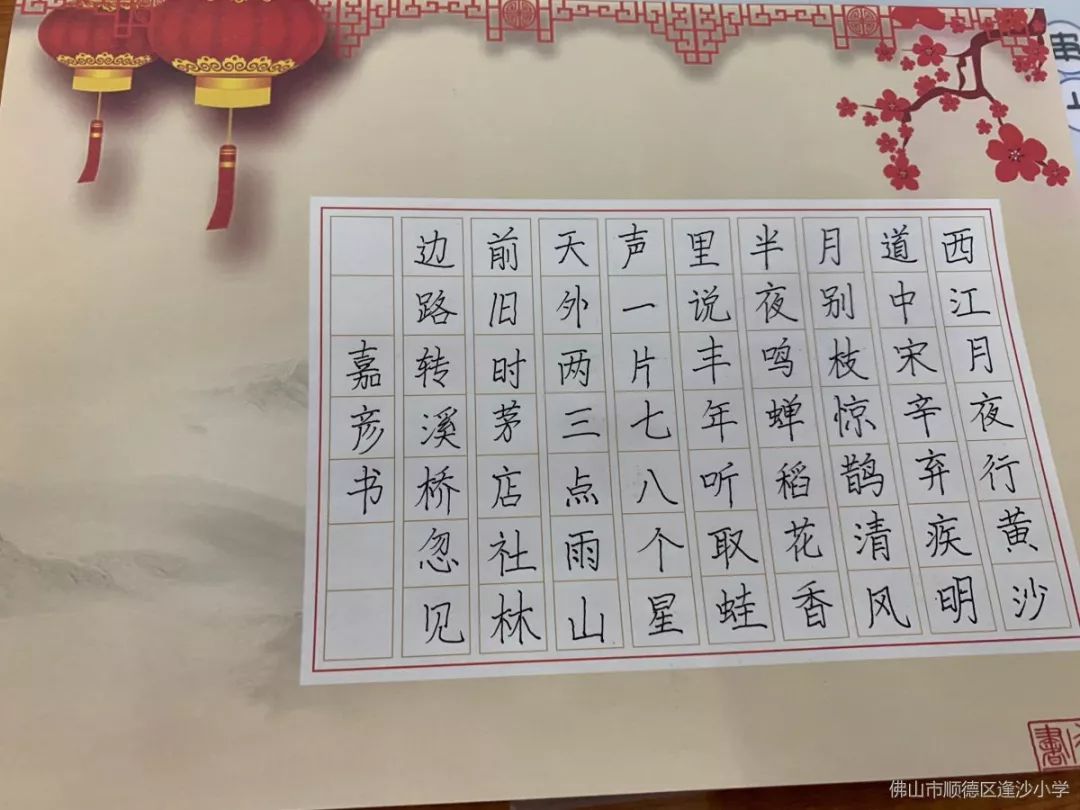 西江月夜行黄沙
道中宋辛弃疾明
月别枝惊鹊清风
半夜鸣蝉稻花香
里说丰年听取蛙
声一片七八个星
天外两三点雨山
前旧时茅店社林
边路转溪桥忽见
嘉彦书
佛山市顺德区逢沙小学